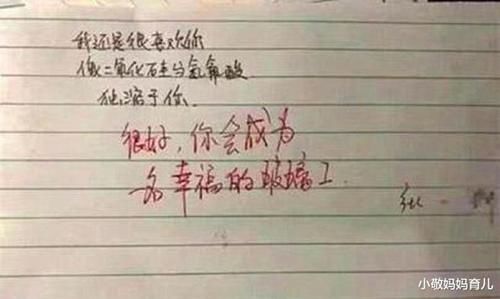 我还是很喜欢你
像二氧化硅与氢氟酸
独溶于你.
很好,你会成为
一名幸福的玻璃工.
小敬妈妈育儿